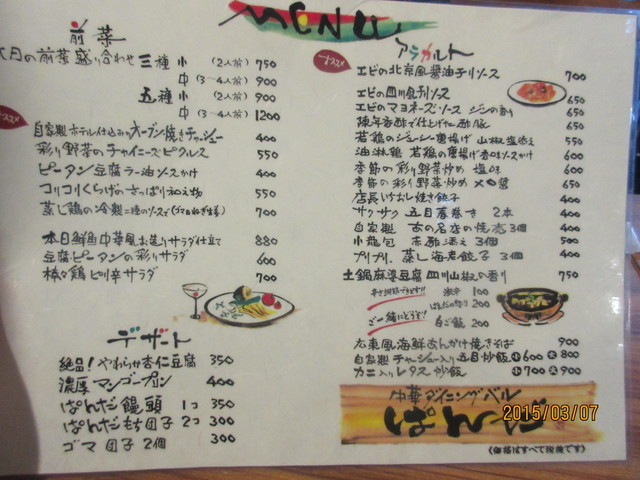 MENU
前菜
の前菜盛り合わせ 三種 小 (2人前) 750
中 (3〜4人前) 900
五種 小 (2人前) 900
中 (3〜4人前) 1200
オススメ
自家製ホテル仕込みのオーブン焼きチャーシュー 400
彩り野菜のチャイニーズピクルス 550
ピータン豆腐ラー油ソースかけ 400
コリコリくらげのさっぱり和え物 550
蒸し鶏の冷製 700
本日鮮魚中華風お造りサラダ仕立て 880
豆腐とピータンの彩りサラダ 600
棒々鶏ピリ辛サラダ 700
デザート
絶品!やわらか杏仁豆腐 350
濃厚マンゴープリン 400
ぱんだ饅頭 1つ 350
ぱんだもち団子 2つ 300
ゴマ団子 2個 300
アラカルト
オススメ
エビの北京風醤油チリソース 700
エビの四川風チリソース 650
エビのマヨネーズソース ジンの香り 650
陳年香酢で仕上げた酢豚 650
若鶏のジューシー唐揚げ 山椒塩添え 550
油淋鶏 若鶏の唐揚げ香味ソースかけ 600
季節の彩り野菜炒め 塩味 600
季節の彩り野菜炒め XO醤 650
店長いちおし焼き餃子 400
サクサク 五目春巻き 2本 400
自家製 の名店の焼売 3個 400
小龍包 赤酢添え 3個 500
プリプリ 蒸し海老餃子 3個 400
土鍋麻婆豆腐 四川山椒の香り 750
激辛 100
ぱんだの怒り 200
ご一緒にどうぞ! 白ご飯 200
広東風海鮮あんかけ焼きそば 900
自家製チャーシュー入り五目炒飯 小600 大800
カニ入りレタス炒飯 小700 大900
中華ダイニングバル
ぱんだ
2015/03/07